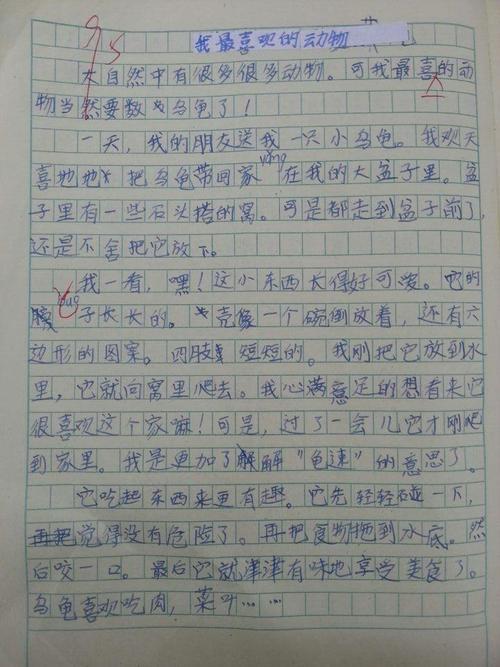 95
我最喜欢的动物
大自然中有很多很多动物。可我最喜的动
物当然要数乌龟了！
一天，我的朋友送我一只小乌龟。我欢天
喜地地把乌龟带回家yǎng在我的大盆子里。盆
子里有一些石头搭的窝。可是都走到盆子前了，
还是不舍把它放下。
我一看，嘿！这小东西长得好可爱。它的
子长长的。壳像一个碗倒放着，还有六
边形的图案。四肢短短的。我刚把它放到水
里，它就向窝里爬去。我心满意足的想看来它
很喜欢这个家嘛！可是，过了一会儿它才刚爬
到家里。我是更加了解"龟速"的意思了。
它吃起东西来更有趣。它先轻轻碰一下，
觉得没有危险了。再把食物拖到水底。然
后咬一口。最后它就津津有味地享受美食了。
乌龟喜欢吃肉，菜叶……